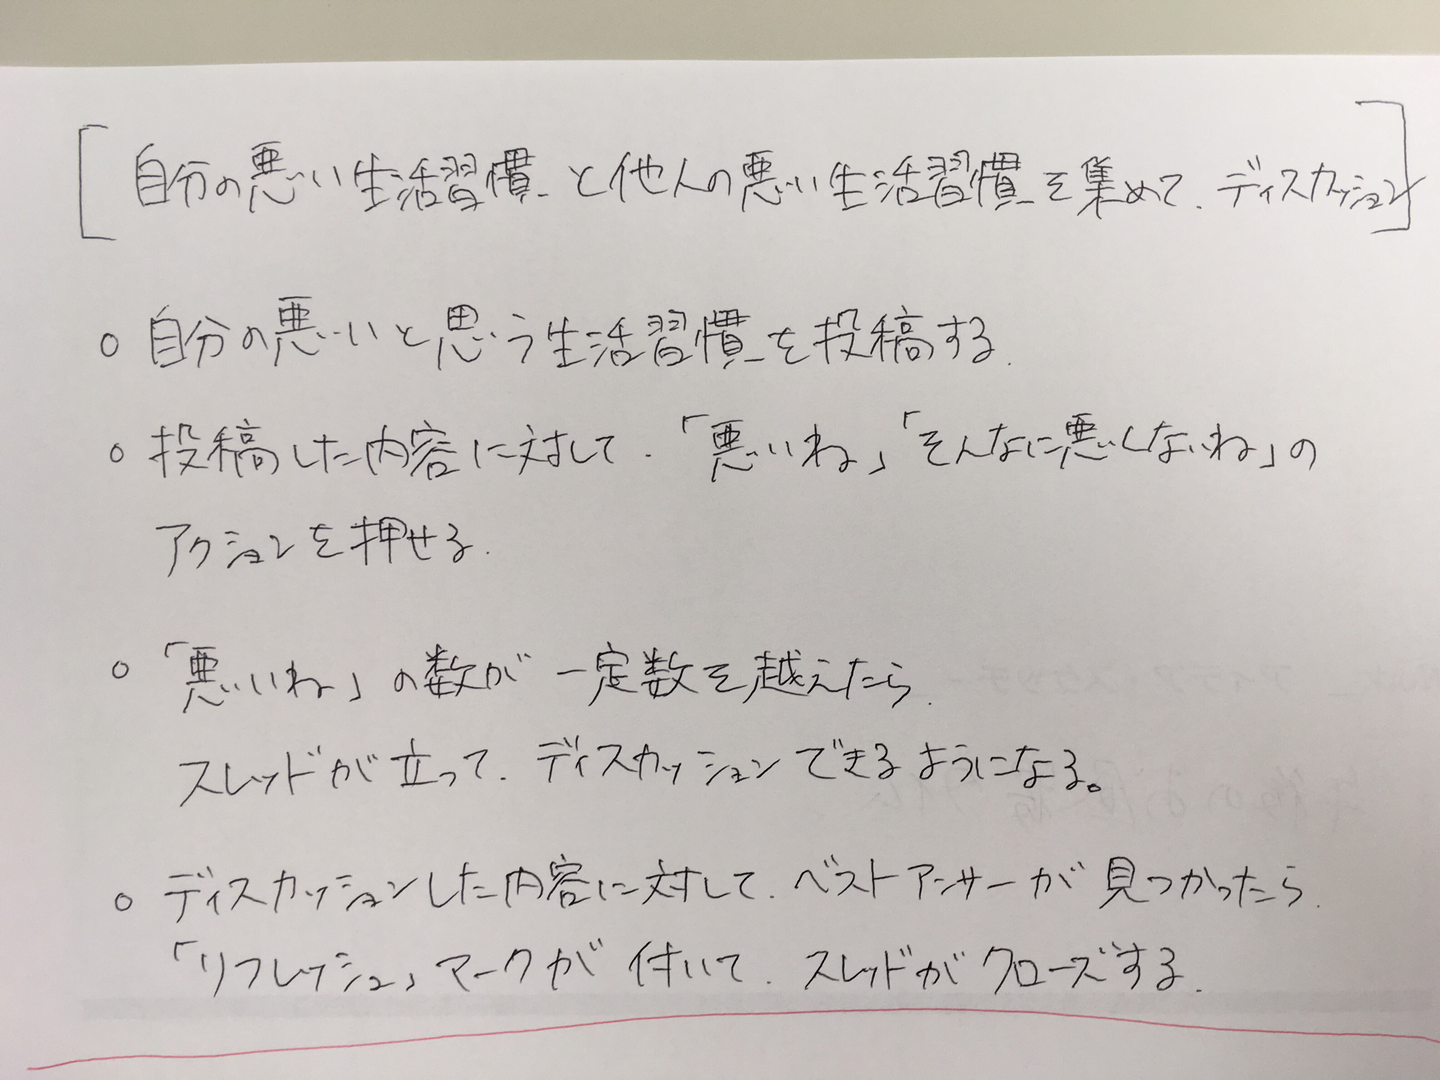 [自分の悪い生活習慣と他人の悪い生活習慣を集めて、ディスカッション]
○ 自分の悪いと思う生活習慣を投稿する、
○ 投稿した内容に対して、「悪いね」「そんなに悪くないね」の
アクションを押せる、
○ 「悪いね」の数が一定数を越えたら、
スレッドが立って、ディスカッションできるようになる。
○ ディスカッションした内容に対して、ベストアンサーが見つかったら、
「リフレッシュ」マークが付いて、スレッドがクローズする、